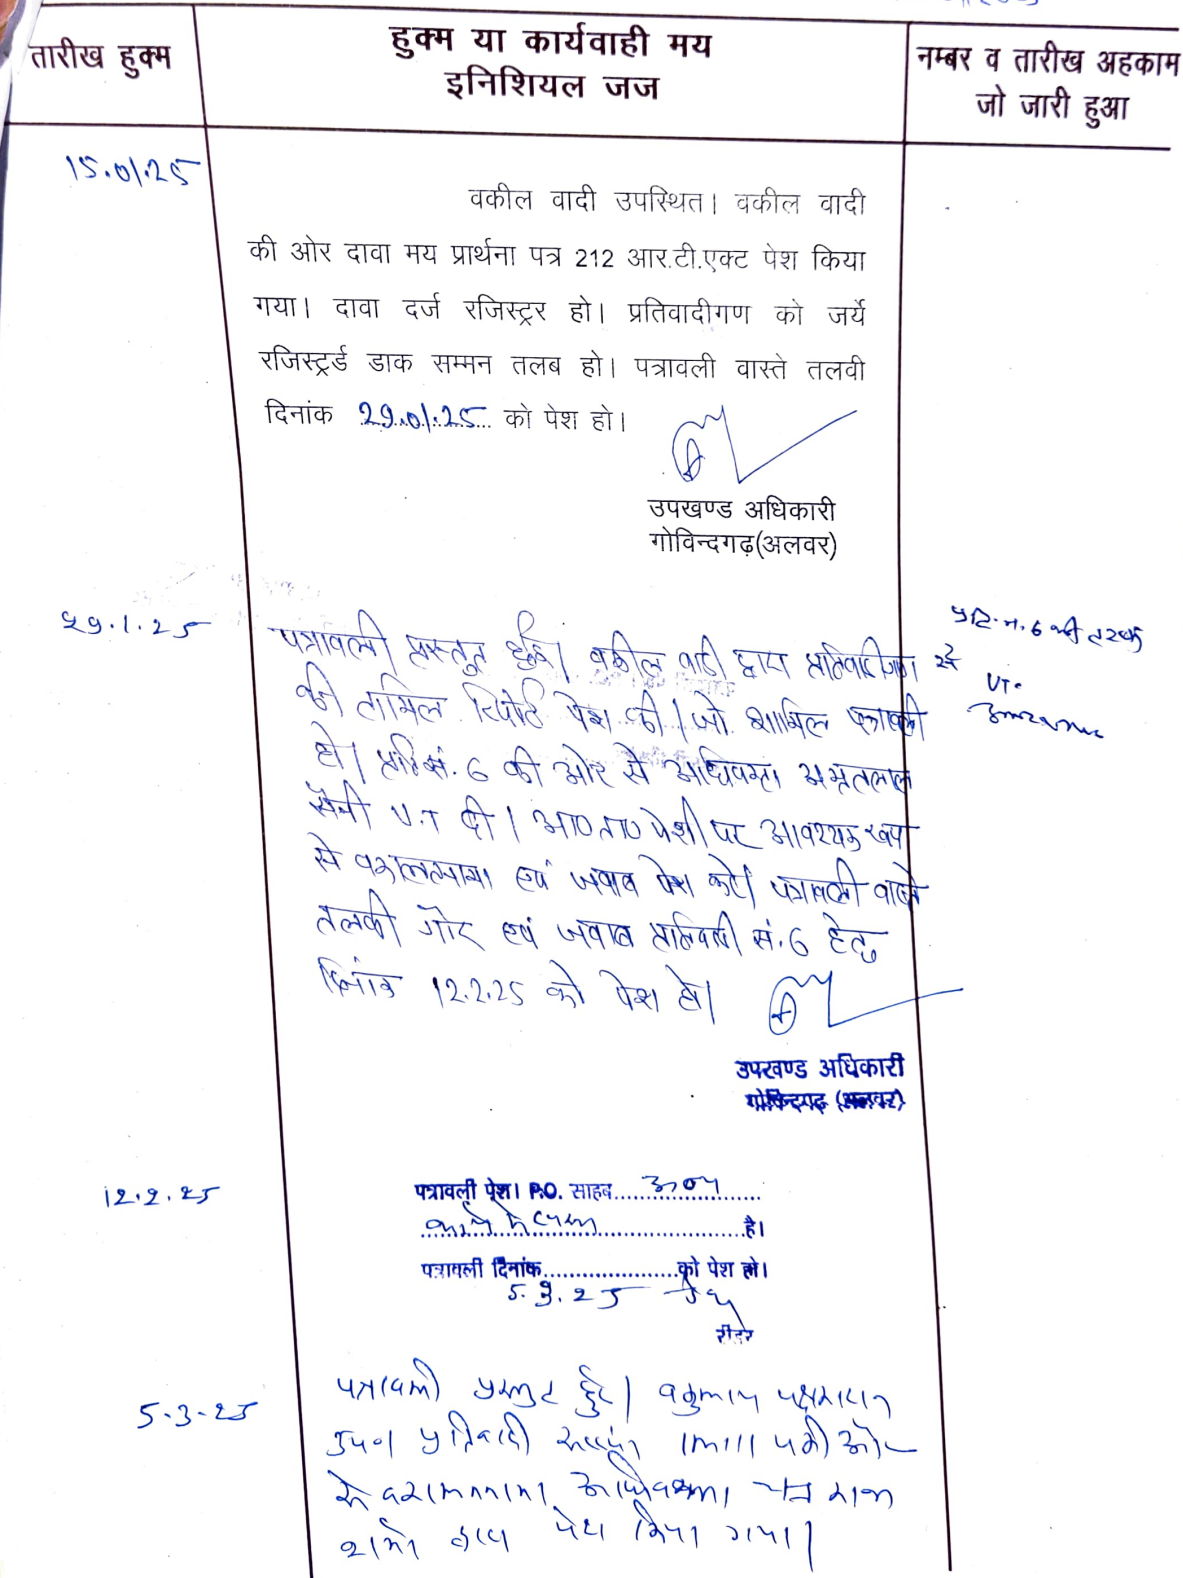 तारीख हुक्म
हुक्म या कार्यवाही मय
इनिशियल जज
नम्बर व तारीख अहकाम
जो जारी हुआ
15.01.25
वकील वादी उपस्थित। वकील वादी
की ओर दावा मय प्रार्थना पत्र 212 आर.टी.एक्ट पेश किया
गया। दावा दर्ज रजिस्ट्रर हो। प्रतिवादीगण को जर्ये
रजिस्ट्रर्ड डाक सम्मन तलब हो। पत्रावली वास्ते तलवी
दिनांक 29.01.25 को पेश हो।
उपखण्ड अधिकारी
गोविन्दगढ़(अलवर)
29.1.25
पत्रावली प्रस्तुत हुई। वकील वादी द्वारा प्रतिवादीगण
की तामिल रिपोर्ट पेश की। जो शामिल पत्रावली
हो। प्रति सं. 6 की ओर से अधिवक्ता अमृतलाल
सैनी U.T दी। आ० ता० पेशी पर आवश्यक रूप
से वकालतनामा एवं जवाब पेश करें। पत्रावली वास्ते
तलबी गैर एवं जवाब प्रतिवादी सं. 6 हेतु
दिनांक 12.2.25 को पेश हो।
प्रति. न. 6 की तरफ
से
UT.
उपखण्ड अधिकारी
गोविन्दगढ़ (अलवर)
12.2.25
पत्रावली पेश। P.O. साहब अन्य
कार्य में व्यस्त है।
पत्रावली दिनांक को पेश हो।
5.3.25
रीडर
5-3-25
पत्रावली प्रस्तुत हुई।
प्रतिवादी की ओर
से वकालतनामा अधिवक्ता
शर्मा द्वारा पेश किया गया।